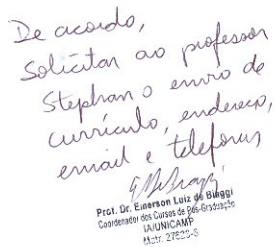 De acordo,
Solicitar ao professor
Stephan o envio de
currículo, endereço,
email e telefones
Prof. Dr. Emerson Luiz de Biaggi
Coordenador dos Cursos de Pós-Graduação
IA/UNICAMP
Matr.